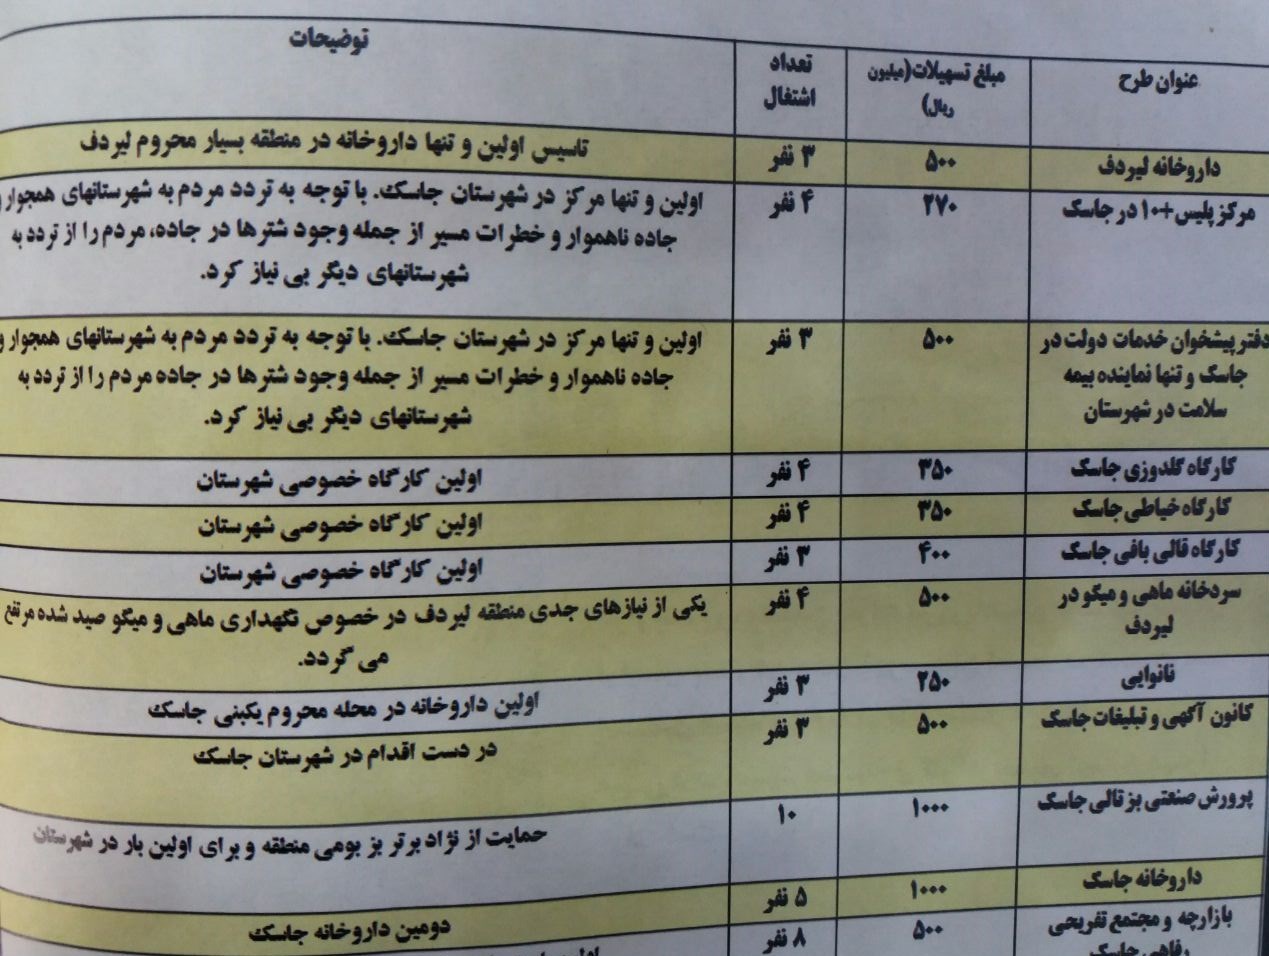 عنوان طرح
مبلغ تسهیلات(میلیون
ریال)
تعداد
اشتغال
توضیحات
داروخانه لیردف
۵۰۰
۳ نفر
تاسیس اولین و تنها داروخانه در منطقه بسیار محروم لیردف
مرکز پلیس+۱۰ در جاسک
۲۷۰
۴ نفر
اولین و تنها مرکز در شهرستان جاسک. با توجه به تردد مردم به شهرستانهای همجوار و
جاده ناهموار و خطرات مسیر از جمله وجود شترها در جاده، مردم را از تردد به
شهرستانهای دیگر بی نیاز کرد.
دفتر پیشخوان خدمات دولت در
جاسک و تنها نماینده بیمه
سلامت در شهرستان
۵۰۰
۳ نفر
اولین و تنها مرکز در شهرستان جاسک. با توجه به تردد مردم به شهرستانهای همجوار و
جاده ناهموار و خطرات مسیر از جمله وجود شترها در جاده مردم را از تردد به
شهرستانهای دیگر بی نیاز کرد.
کارگاه گلدوزی جاسک
۳۵۰
۴ نفر
اولین کارگاه خصوصی شهرستان
کارگاه خیاطی جاسک
۳۵۰
۴ نفر
اولین کارگاه خصوصی شهرستان
کارگاه قالی بافی جاسک
۴۰۰
۳ نفر
اولین کارگاه خصوصی شهرستان
سردخانه ماهی و میگو در
لیردف
۵۰۰
۴ نفر
یکی از نیازهای جدی منطقه لیردف در خصوص نگهداری ماهی و میگو صید شده مرتفع
می گردد.
نانوایی
۲۵۰
۳ نفر
اولین داروخانه در محله محروم یکبنی جاسک
کانون آگهی و تبلیغات جاسک
۵۰۰
۳ نفر
در دست اقدام در شهرستان جاسک
پرورش صنعتی بز تالی جاسک
۱۰۰۰
۱۰
حمایت از نژاد برتر بز بومی منطقه و برای اولین بار در شهرستان
داروخانه جاسک
۱۰۰۰
۵ نفر
دومین داروخانه جاسک
بازارچه و مجتمع تفریحی
رفاهی جاسک
۵۰۰
۸ نفر